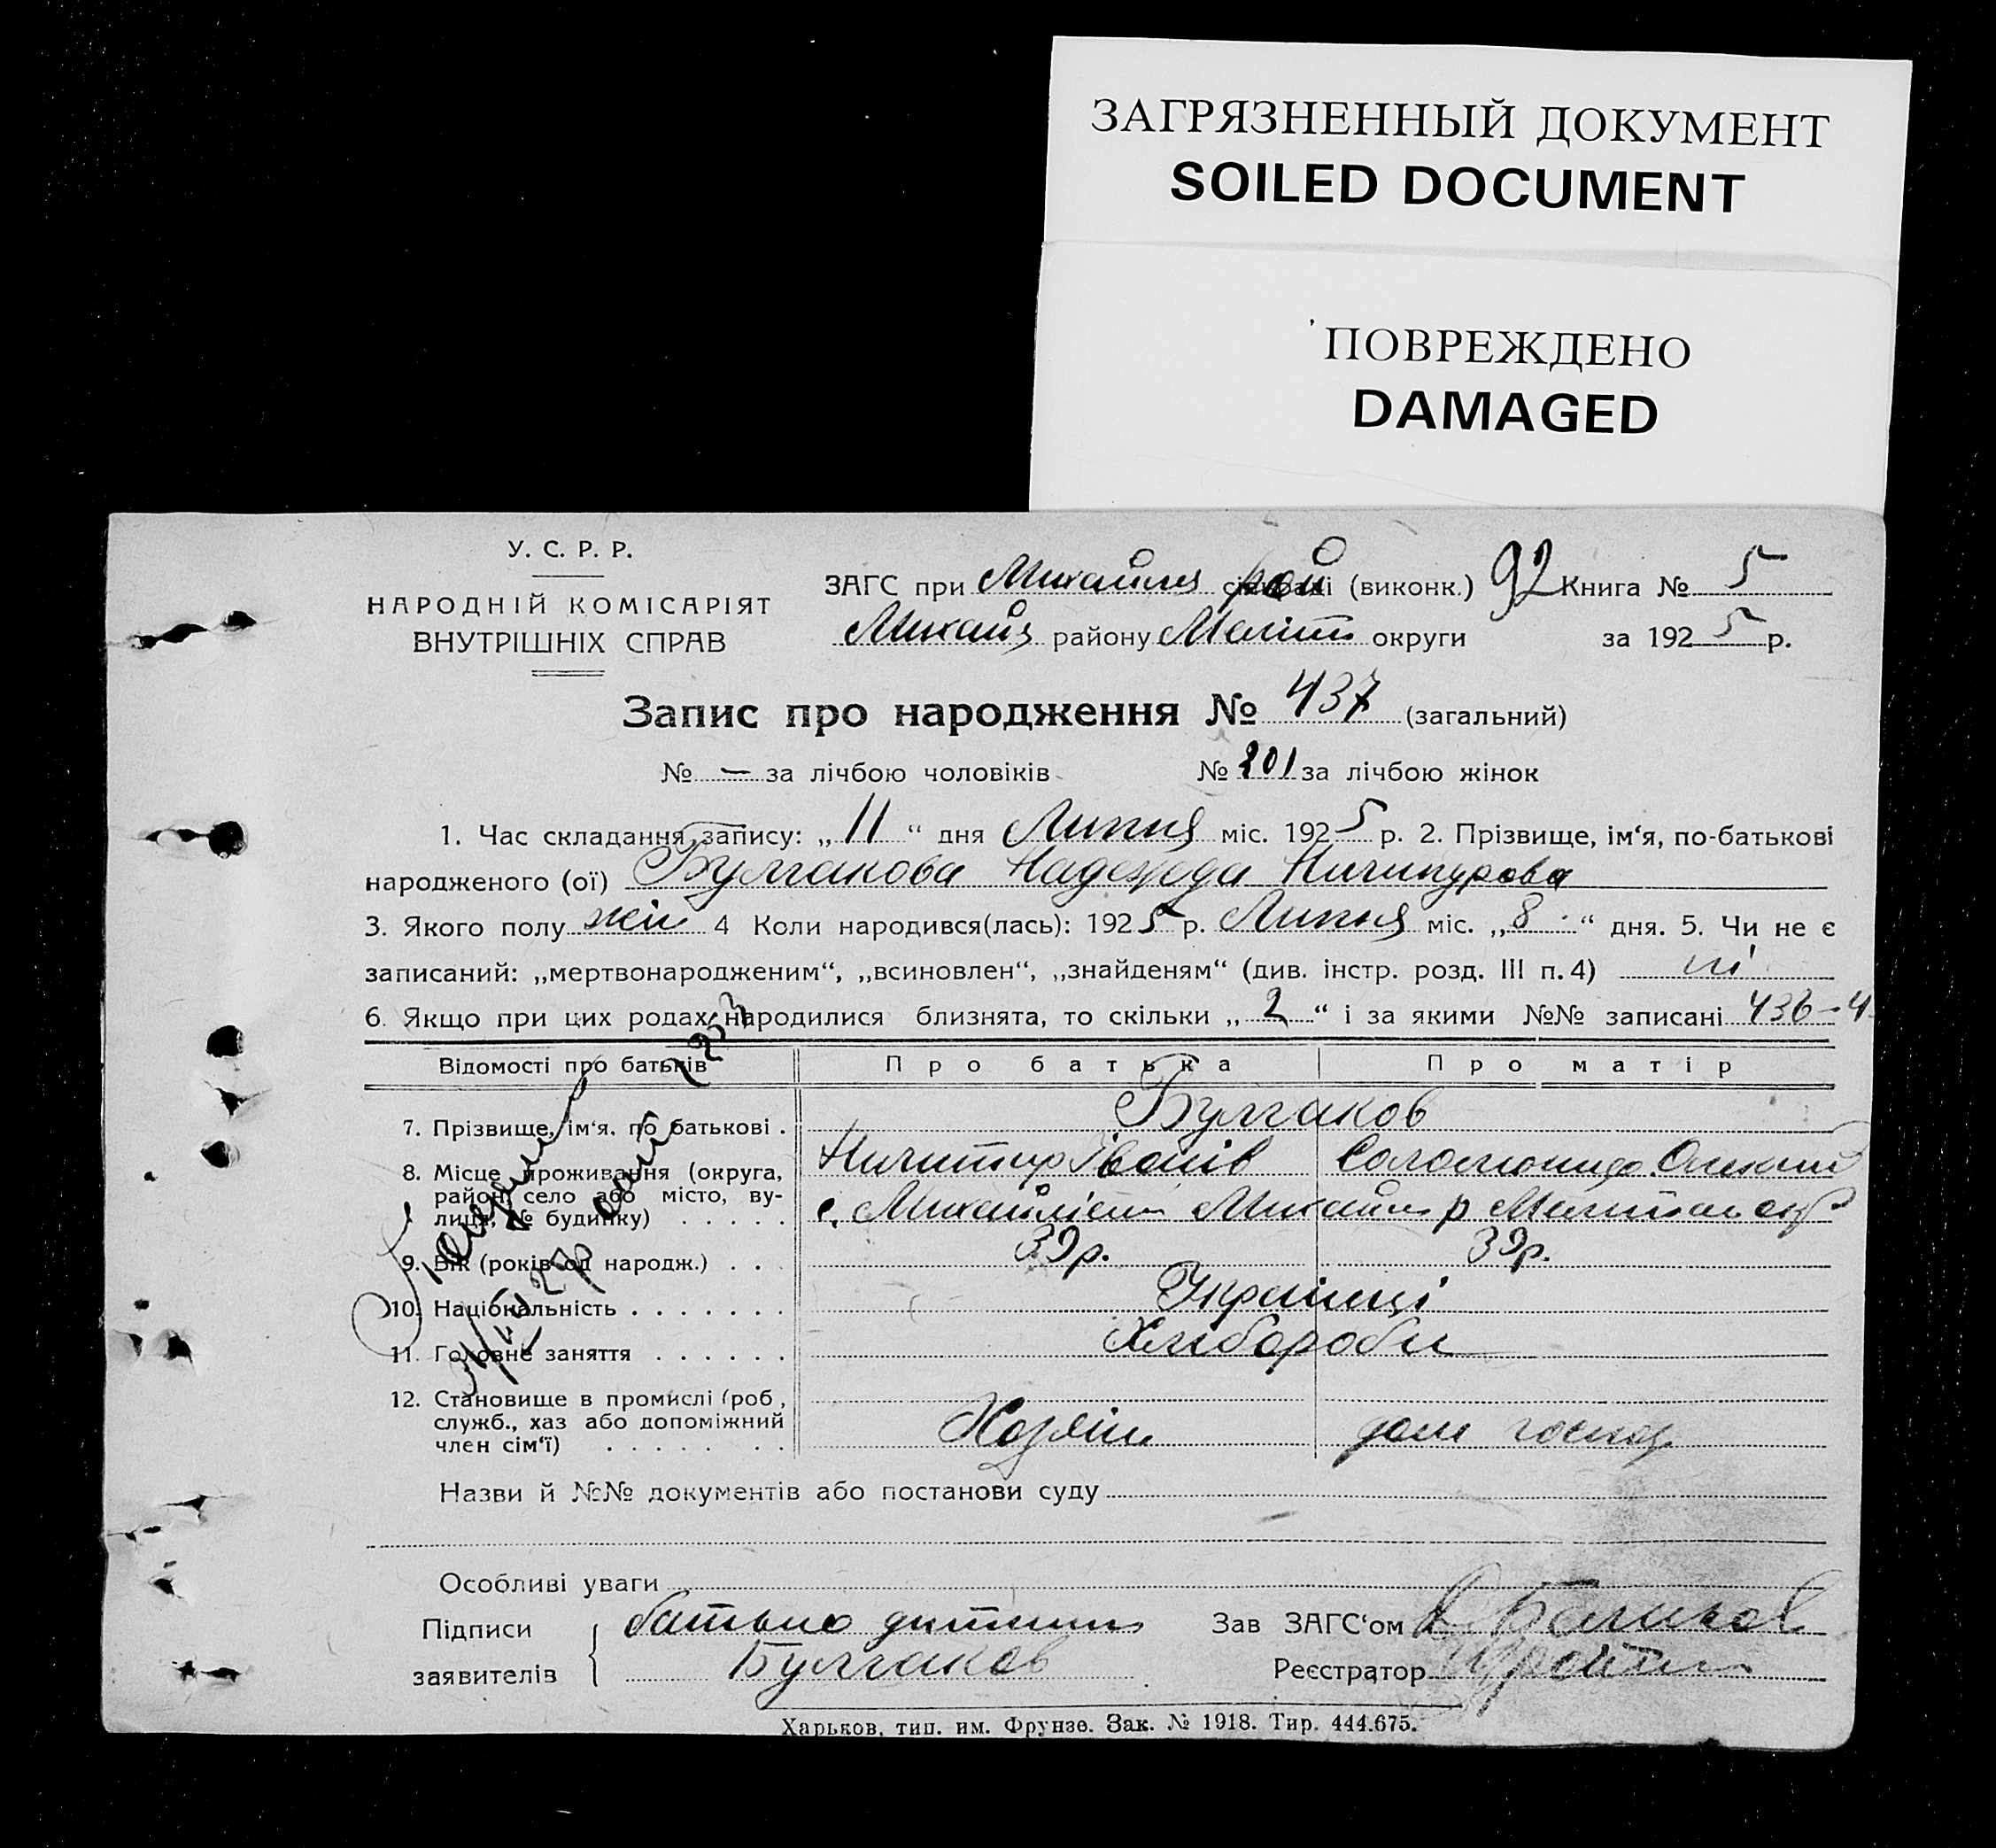 ЗАГРЯЗНЕННЫЙ ДОКУМЕНТ
SOILED DOCUMENT
ПОВРЕЖДЕНО
DAMAGED
У. С. Р. Р.
НАРОДНІЙ КОМІСАРІЯТ
ВНУТРІШНІХ СПРАВ
ЗАГС при Михайл рай (виконк.) 92 Книга № 5
Михайл району Меліт округи за 1925 р.
Запис про народження № 437 (загальний)
№ — за лічбою чоловіків № 201 за лічбою жінок
1. Час складання запису: „11“ дня Липня міс. 1925 р. 2. Прізвище, ім‘я, по-батькові
народженого (ої) Булгакова Надежда Ничипурова
3. Якого полу жін 4 Коли народився(лась): 1925 р. Липня міс. „8“ дня. 5. Чи не є
записаний: „мертвонародженим“, „всиновлен“, „знайденям“ (див. інстр. розд. III п. 4) ні
6. Якщо при цих родах народилися близнята, то скільки „2“ і за якими №№ записані 436-4
Відомості про батьків Про батька Про матір
7. Прізвище, ім‘я, по батькові . Булгаков
8. Місце проживання (округа, район, село або місто, вулиця, № будинку) . . . . . Ничипур Іванів
с. Михайл р
9. Вік (років од народж.) . . . 39р. 39р.
10. Національність . . . . . . . Українці
11. Головне заняття . . . . . . Хлібороби
12. Становище в промислі (роб, служб., хаз або допоміжний член сім‘ї) . . . . . . . Хозяін дом господ
Назви й №№ документів або постанови суду
Особливі уваги
Підписи заявителів батько дитини
Булгаков
Зав ЗАГС‘ом
Реєстратор
Харьков, тип. им. Фрунзе. Зак. № 1918. Тир. 444.675.